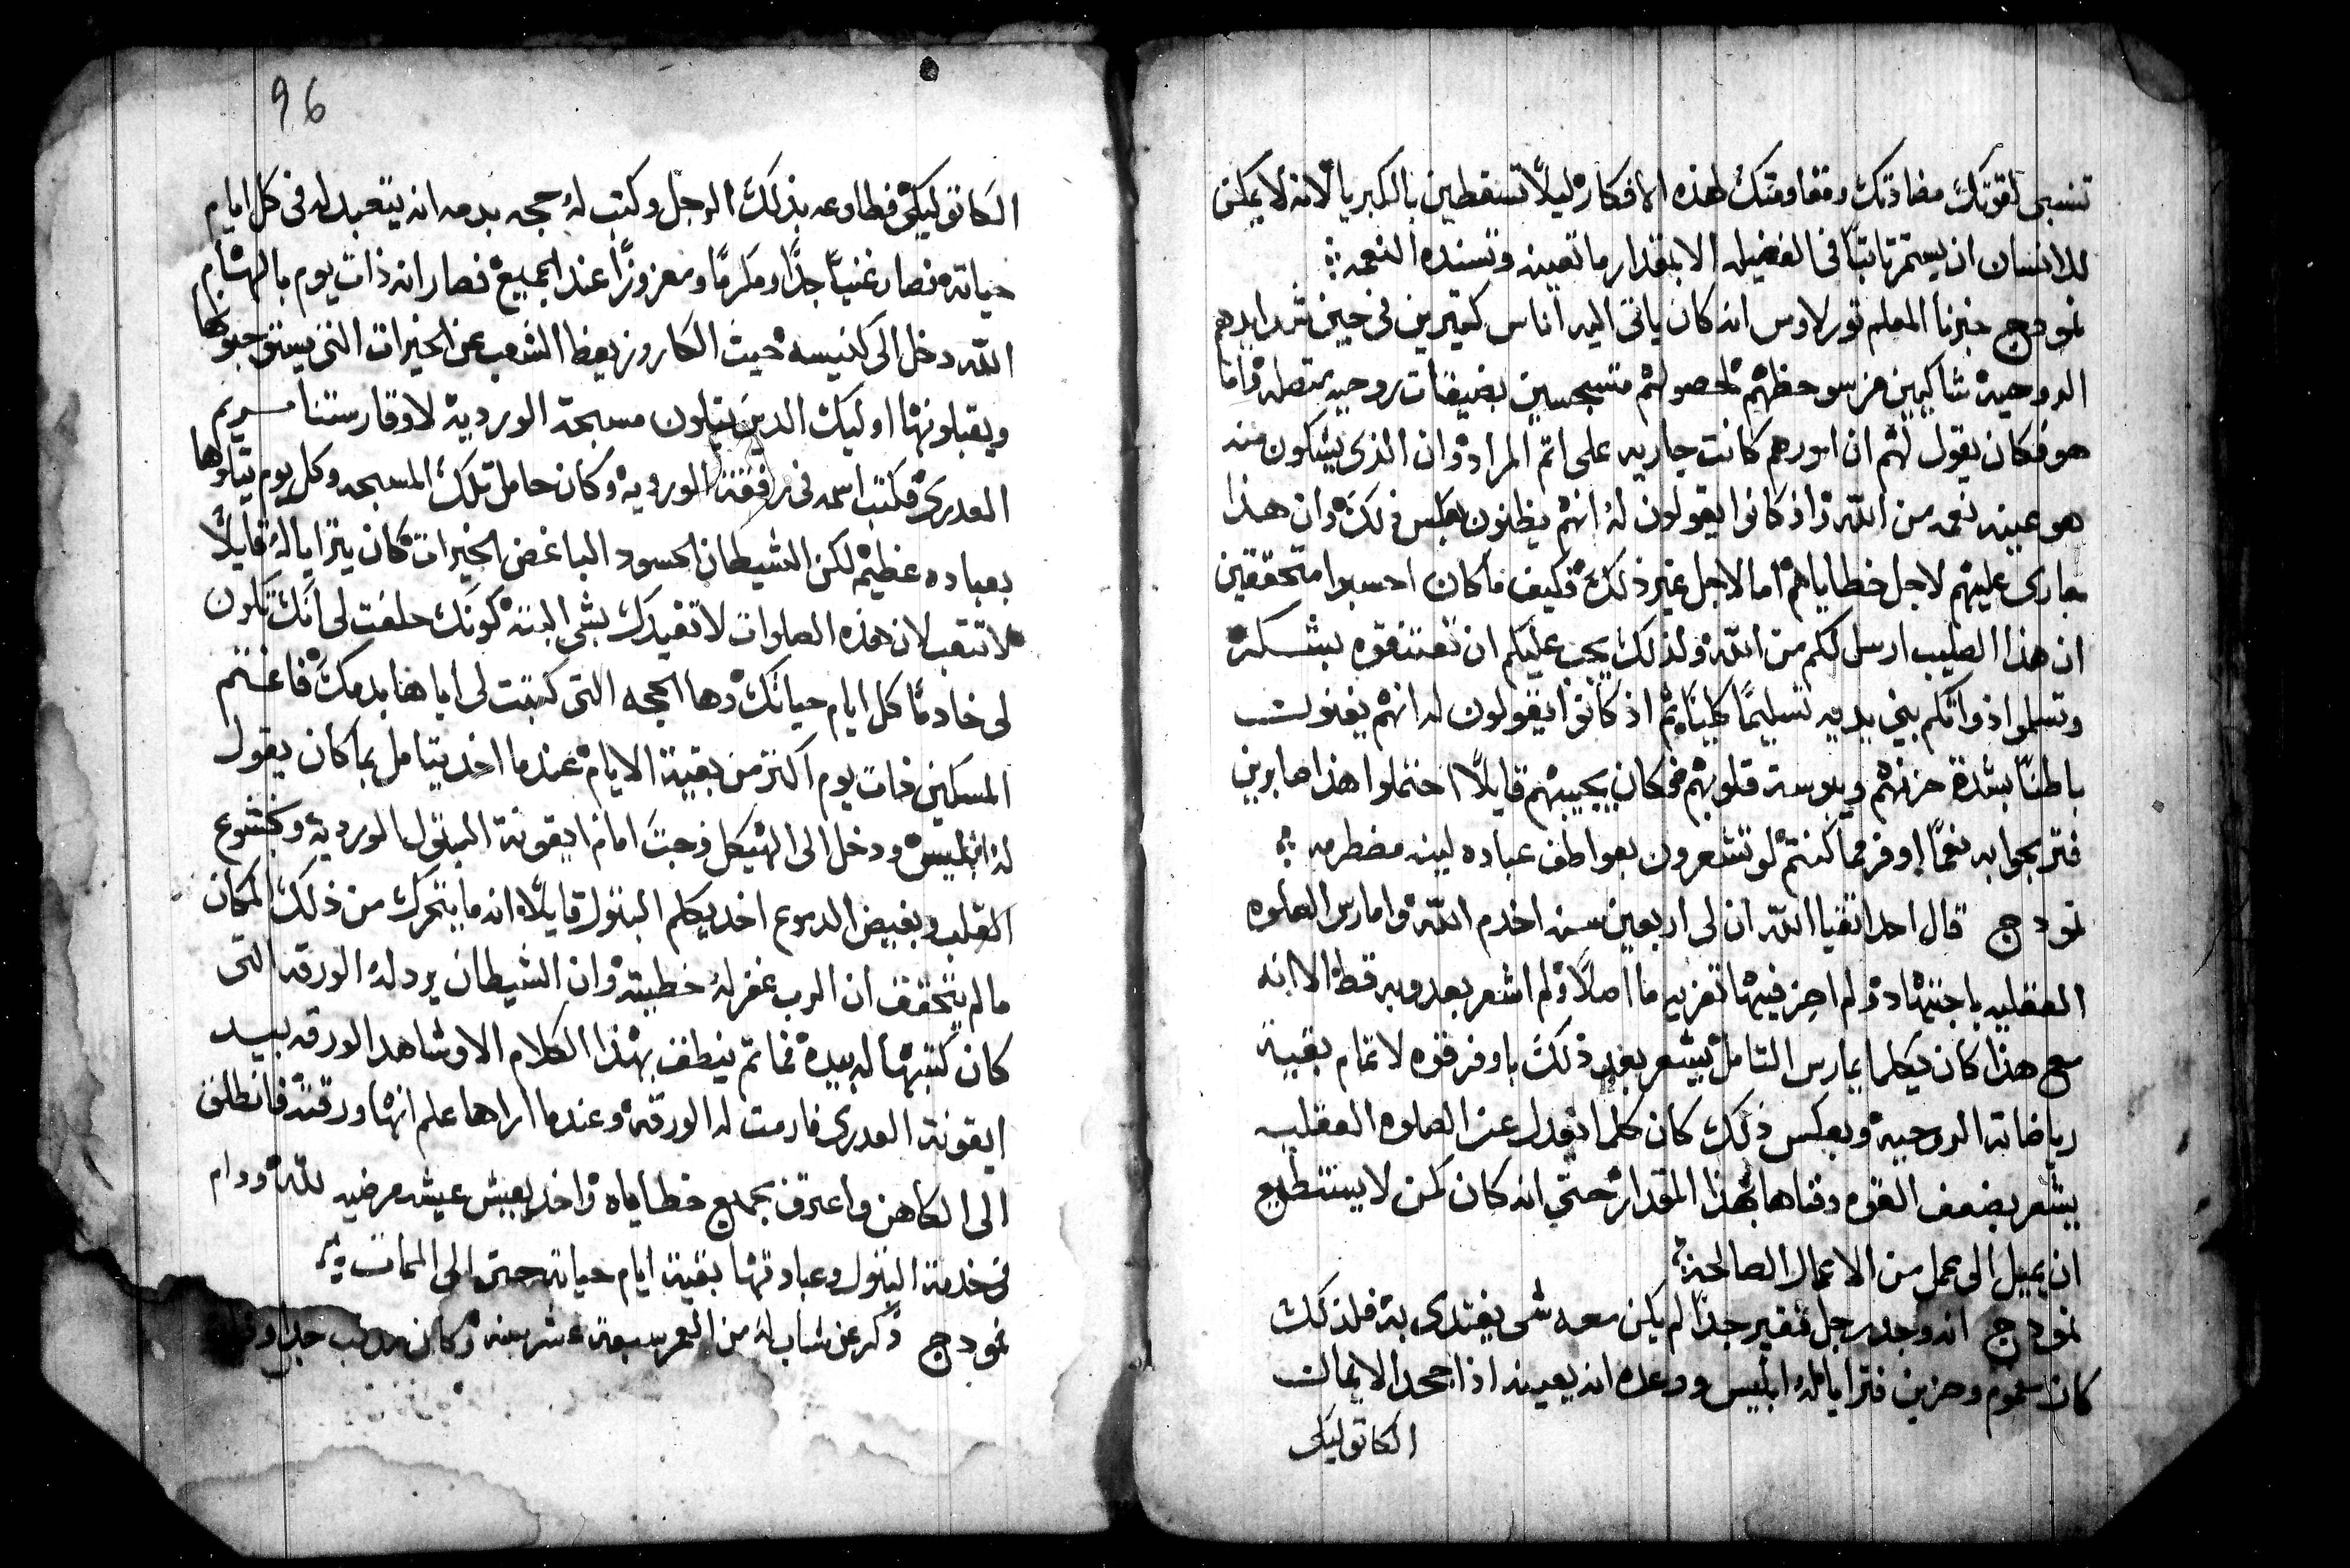 تنسبي لقوتك مضادتك ومقاومتك لهذه الافكار ليلًا تسقطين بالكبريا لانه لا يمكن
للانسان ان يستمر ثابتًا في الفضيله الا بمقدار ما تعينه وتسنده النعمه
نمودج خبرنا المعلم تورلاوس انه كان ياتي اليه اناس كتيرين في حين شدايدهم
الروحيه شاكيين من سو حظهم لحصولهم متسجسين بضيقات روحيه متصله واما
هو فكان يقول لهم ان امورهم كانت جاريه على اتم المراد وان الذي يشكون منه
هو عينه نعمه من الله واذ كانوا يقولون له انهم يظنون بعكس ذلك وان هذا
جاري عليهم لاجل خطاياهم اما لاجل غير ذلك فكيف ما كان احسبوا متحققين
ان هذا الصليب ارسل لكم من الله ولذلك يجب عليكم ان تعتنقوه بشكر
وتسلموا ذواتكم بين يديه تسليمًا كليًا ثم اذ كانوا يقولون له انهم يفنوا
باطنًا بشدة حزنهم ويبوسة قلوبهم فكان يجيبهم قايلًا احتملوا هذا صابرين
فتربحوا به نفعًا اوفر مما كنتم لو تشعرون بعواطف عباده لينه مضطرمه
نمودج قال احد اتقيا الله ان لي اربعين سنه اخدم الله وامارس الصلوه
العقليه باجتهاد ولم احز فيها تعزيه ما اصلًا ولم اشعر بعدوبه قط الا انه
مع هذا كان كلما يمارس التامل يشعر بعد ذلك باوفر قوه لاتمام بقية
رياضاته الروحيه وبعكس ذلك كان كلما تعدل عن الصلوه العقليه
يشعر بضعف القوه وفناها بهذا المقدار حتي انه كان كمن لا يستطيع
ان يميل الى عمل من الاعمال الصالحة
نمودج انه وجد رجل فقير جدًا لم يكن معه شي يفتدي به فلذلك
كان مغموم وحزين فترايا له ابليس ووعده انه يعينه اذا جحد الايمان
الكاتوليكي
96
الكاتوليكي فطاوعه بذلك الرجل وكتب له حجه بدمه انه يتعبد له في كل ايام
حياته فصار غنيًا جدًا ومكرمًا ومعزوزًا عند الجميع فصار انه ذات يوم بالهام
الله دخل الى كنيسه حيث الكاروز يعظ الشعب عن الخيرات التي يستوجبوها
ويقبلونها اوليك الدين يتلون مسبحة الورديه لاوقار ستنا مريم
العدرى فكتب اسمه في رفقة الورديه وكان حامل تلك المسبحه وكل يوم يتلوها
بعباده عظيم لكن الشيطان الحسود الباغض الخيرات كان يترايا له قايلًا
لا تتعب لان هذه الصلوات لا تفيدك بشي البته كونك حلفت لي انك تكون
لي خادمًا كل ايام حياتك وها الحجه التي كتبت لي اياها بدمك فاغتم
المسكين ذات يوم اكتر من بقية الايام عندما اخد يتامل بما كان يقول
له ابليس ودخل الى الهيكل وجت امام ايقونة البتول الورديه وبخشوع
القلب وبفيض الدموع اخد يكلم البتول قايلًا انه ما يتحرك من ذلك المكان
ما لم يتحقق ان الرب غفر له خطيته وان الشيطان يرد له الورقه التي
كان كتبها له بيده فما تم ينطق بهذا الكلام الا وشاهد الورقه بيد
ايقونة العدرى فارمت له الورقه وعندما اراها علم انها ورقته فانطلق
الى الكاهن واعترف بجميع خطاياه واخد يعيش عيشه مرضيه لله ودام
في خدمة البتول وعبادتها بقية ايام حياته حتى الى الممات
نمودج ذكر عن شاب له من العمر سبعة عشر سنه وكان مودب جدًا